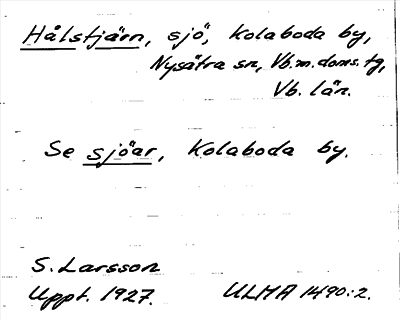 Hålstjärn, sjö, Kolaboda by,
Nysätra sn, Vb.m.doms.tg,
Vb. län.
Se sjöar, Kolaboda by.
S. Larsson
Uppt. 1927.
ULMA 1490:2.